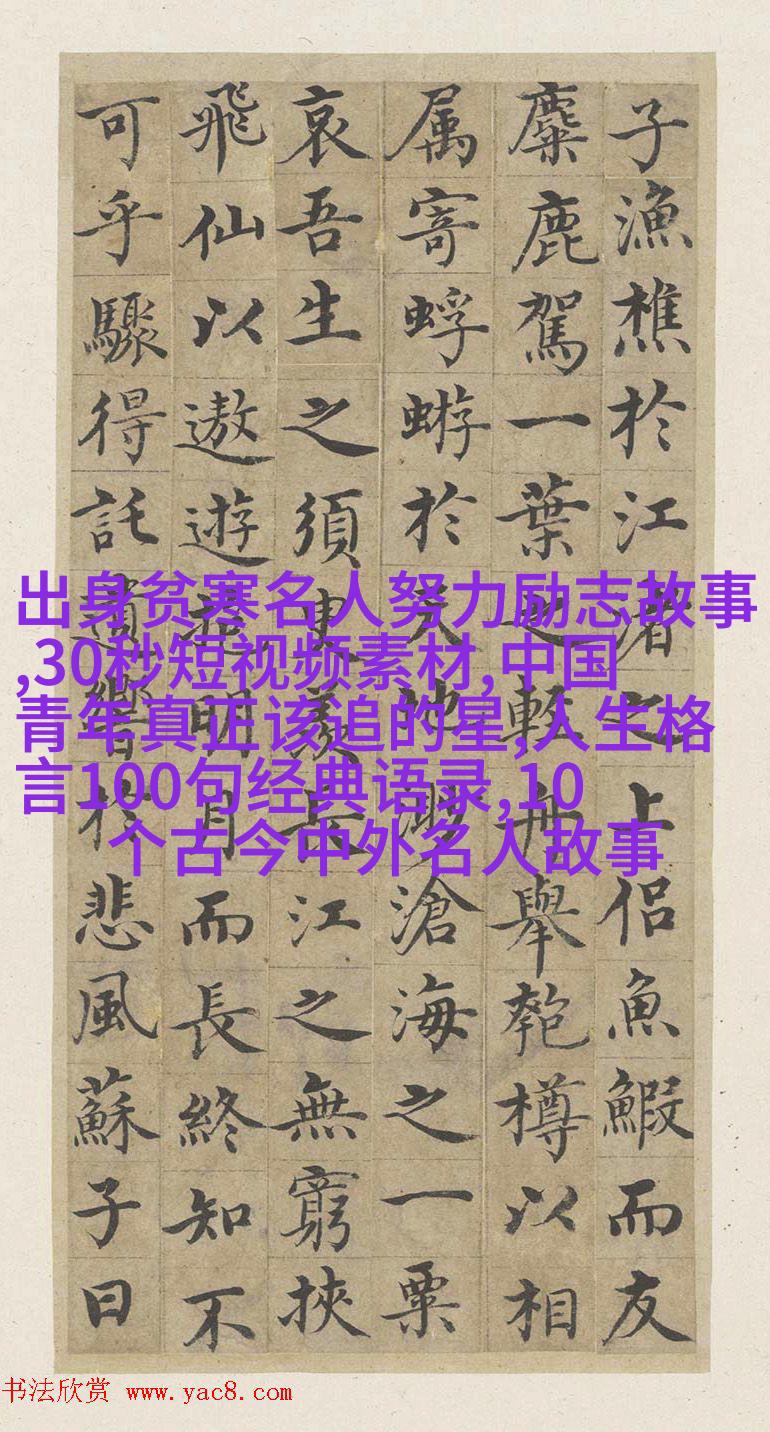 子漁樵於江渚之上侶魚鰕而友
麋鹿駕一葉之輕舟舉匏樽以相
属寄蜉蝣於天地渺滄海之一粟
哀吾生之須臾羨長江之無窮挾
飛仙以遨遊抱明月而長終知不
可乎驟得託遺響於悲風蘇子曰
出身贫寒名人努力励志故事
,30秒短视频素材,中国
青年真正该追的星,人生格
言100句经典语录,10
个古今中外名人故事
书法欣赏 www.yac8.com